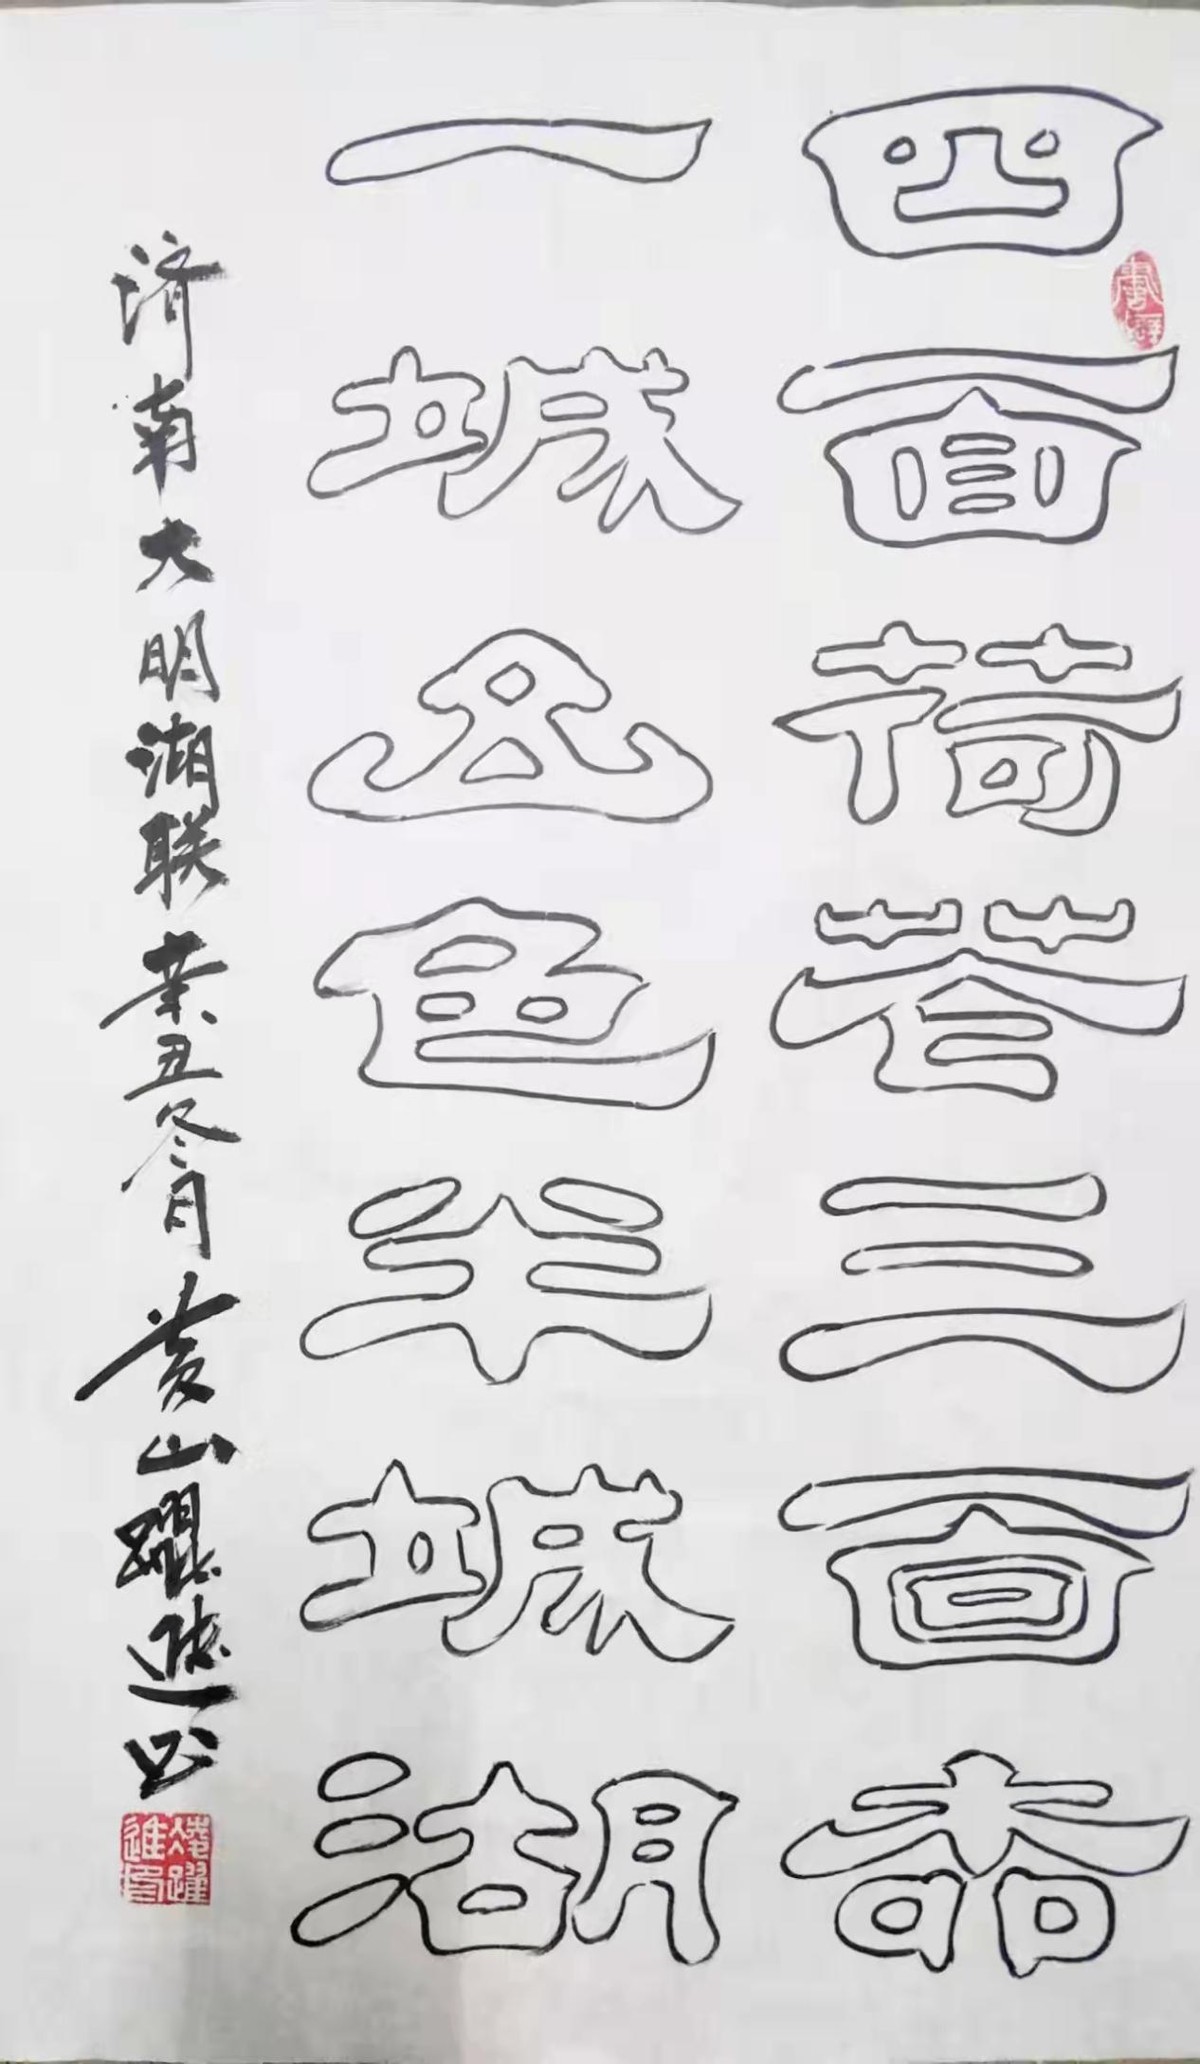 四面荷花三面柳
一城山色半城湖
济南大明湖联辛丑冬月黄山躍進书